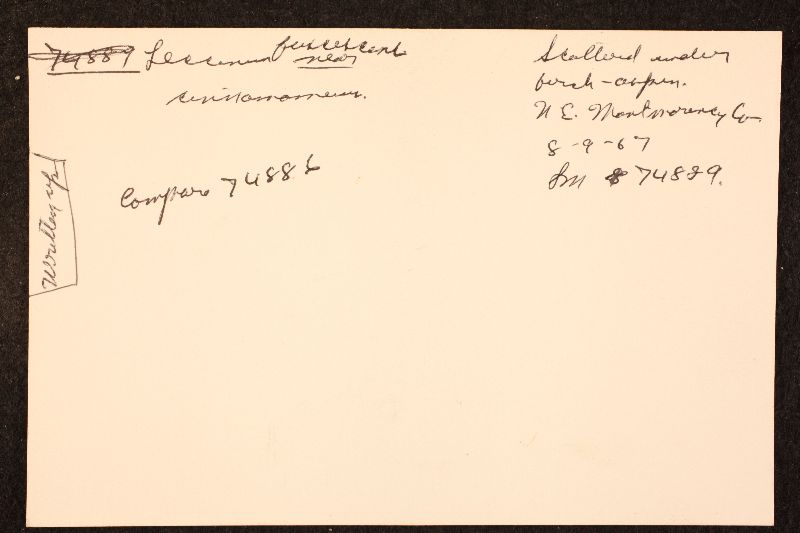 74889 Leccinum fuscescens
near
cinnamomeum.
Scattered under
birch-aspen.
N E. Montmorency Co.
8-9-67
Sm 74889.
Compare 74886
Written up